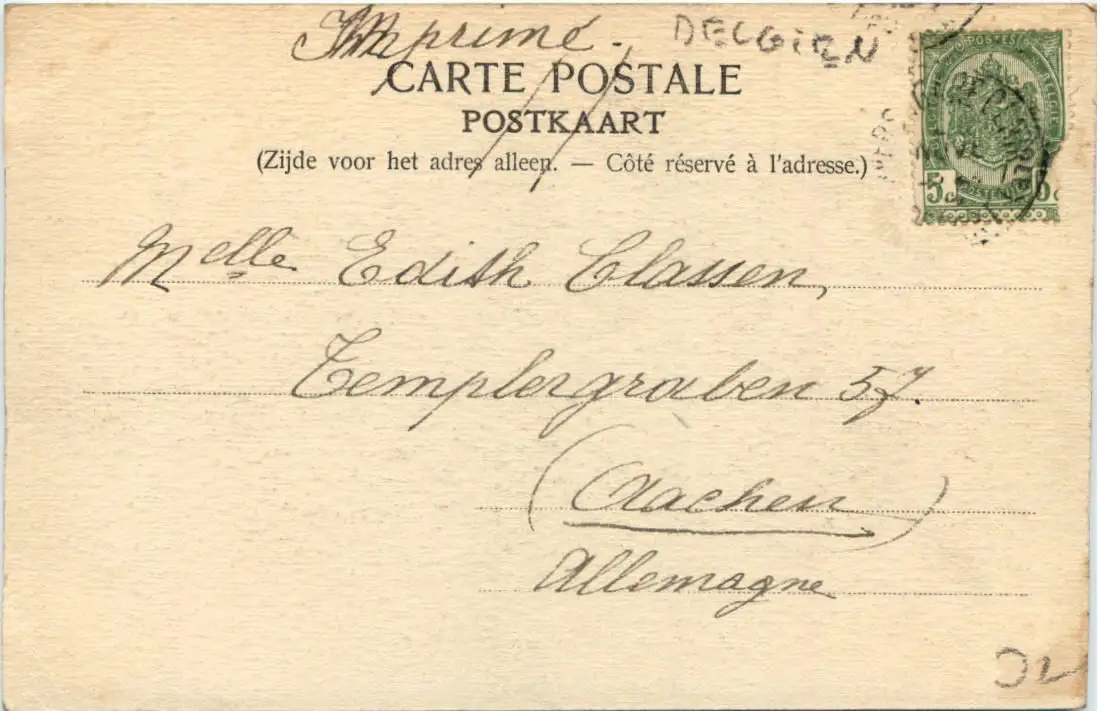 Imprimé. BELGIEN
CARTE POSTALE
POSTKAART
(Zijde voor het adres alleen. — Côté réservé à l'adresse.)
POSTES
5 c
Melle Edith Classen,
Templergraben 57.
(Aachen)
Allemagne